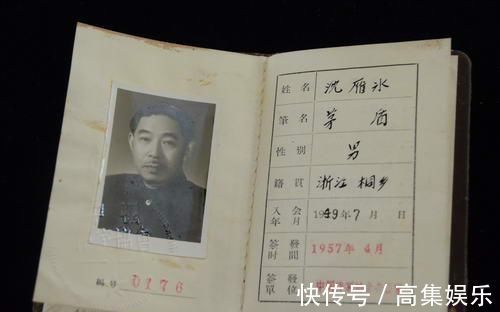 編号 0176
姓名 沈雁冰
筆名 茅盾
性别 男
籍貫 浙江 桐乡
入会年月 1949年7月 日
簽發时間 1957年4月
簽發單位
快传号/高集娱乐